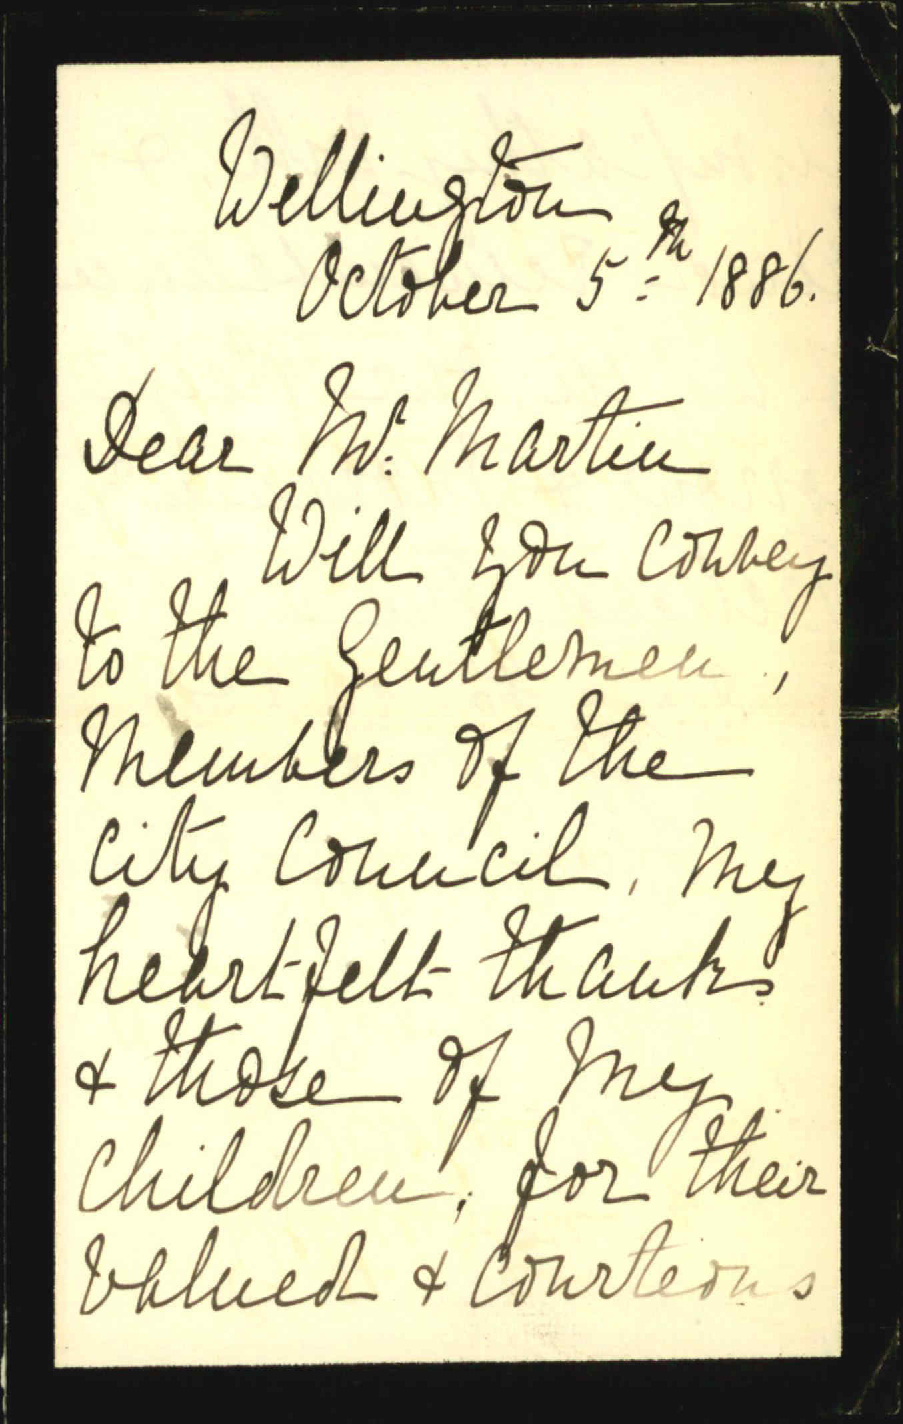 Wellington
October 5th 1886.
Dear Mr. Martin
Will you convey
to the Gentlemen,
Members of the
City Council, my
heartfelt thanks
& those of my
children, for their
valued & courteous